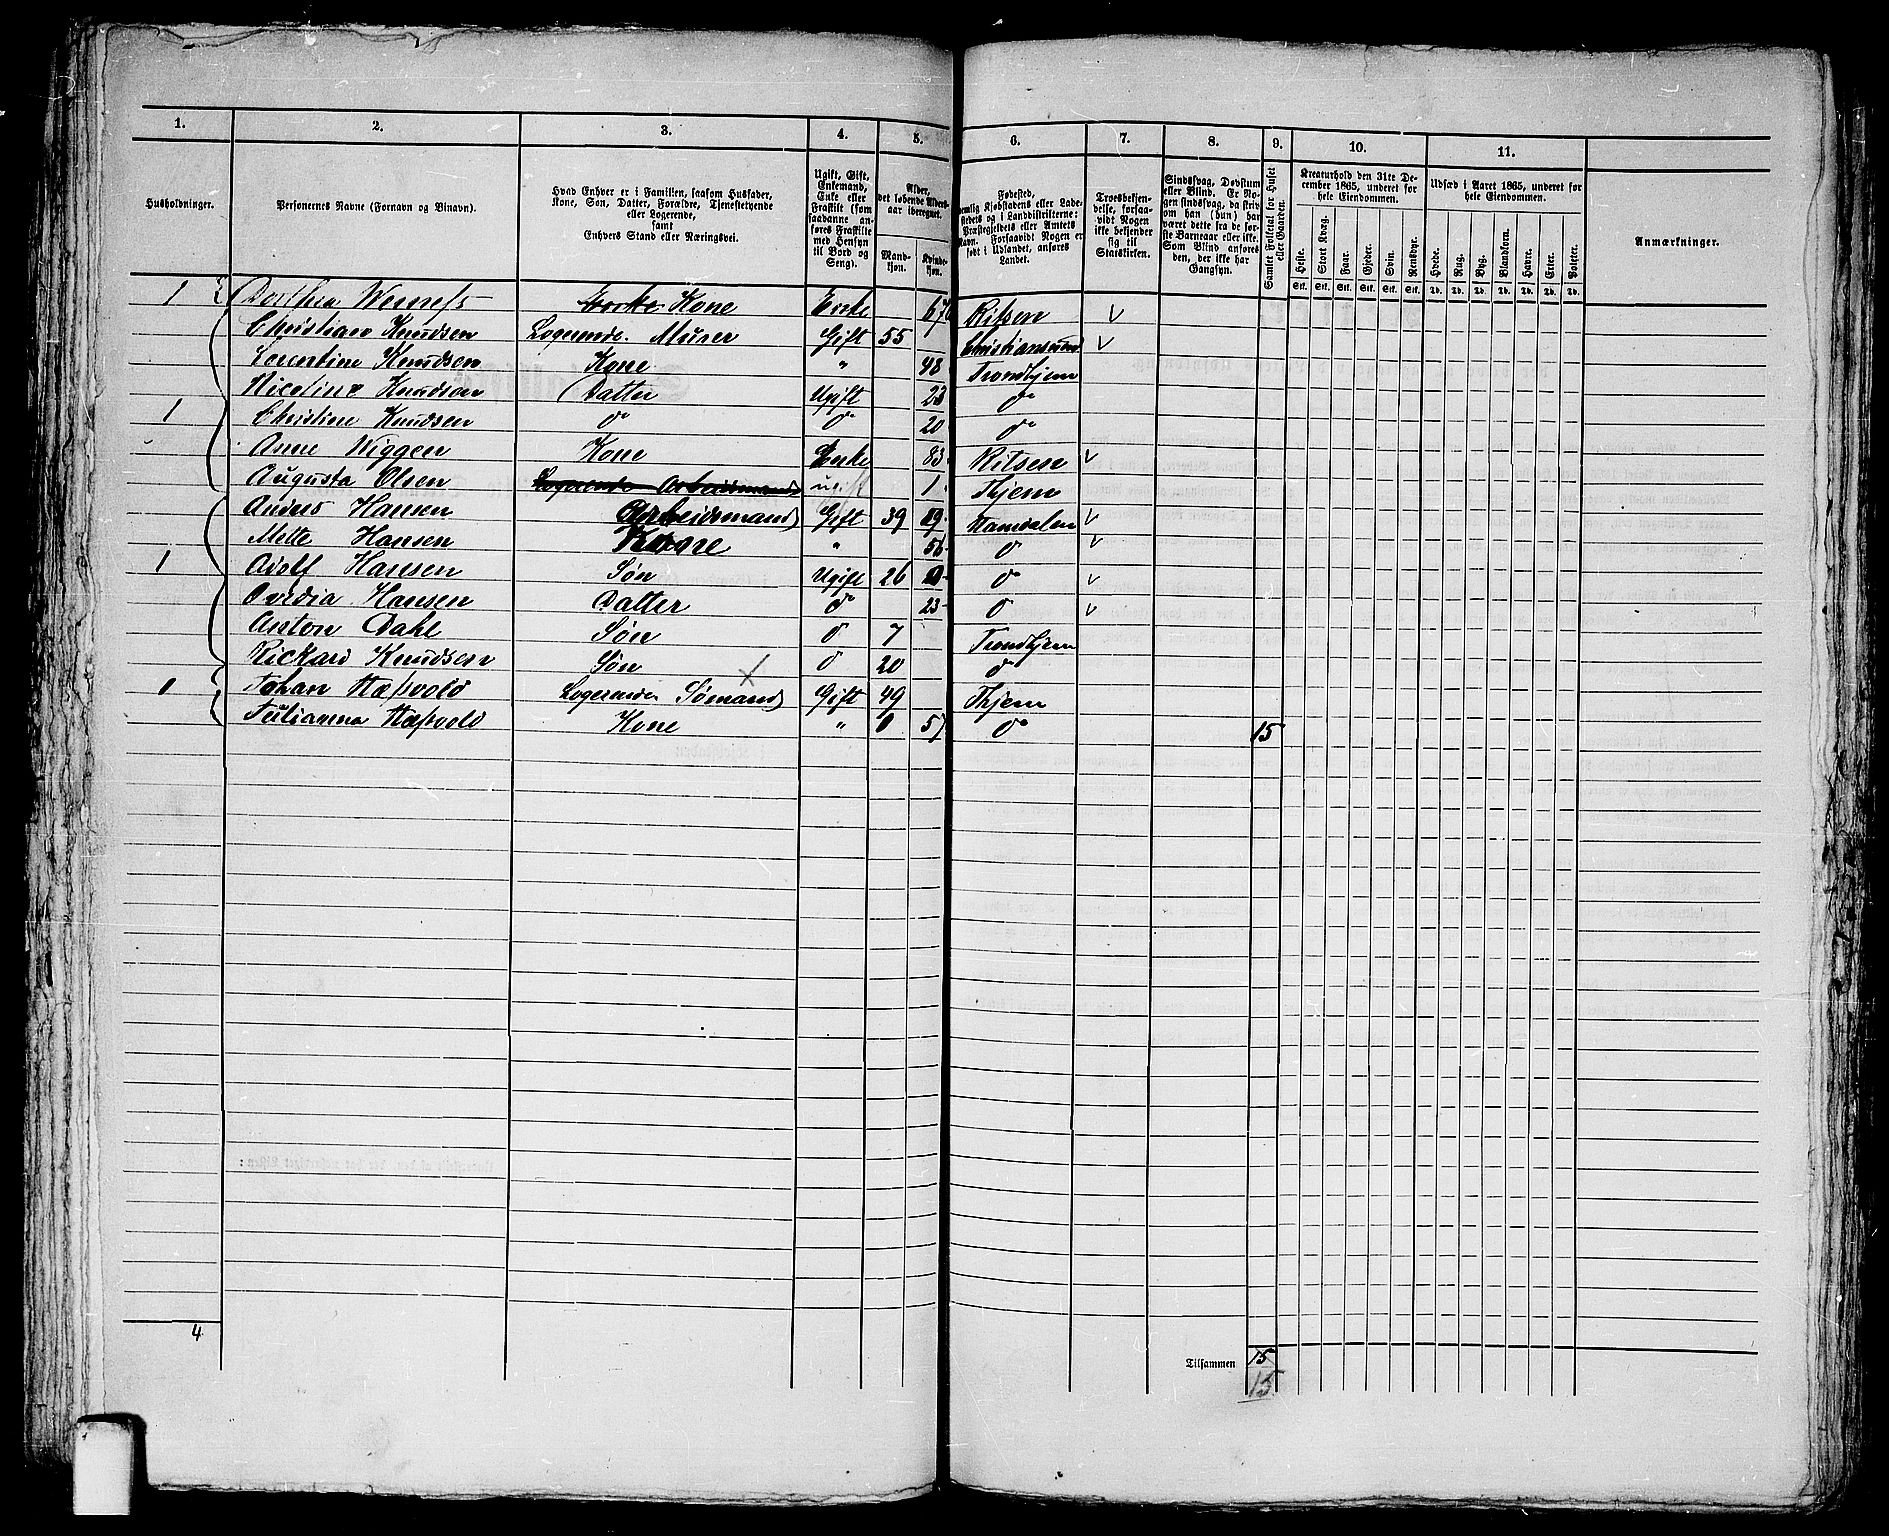 1. 2. 3. 4. 5. 6. 7. 8. 9. 10. 11.
Husholdninger.
Personernes Navne (Fornavn og Binavn).
Hvad Enhver er i Familien, saasom Husfader,
Kone, Søn, Datter, Forældre, Tjenestetyende
eller Logerende,
samt
Enhvers Stand eller Næringsvei.
Ugift, Gift,
Enkemand,
Enke eller
Fraskilt (som
saadanne an-
føres Fraskilte
med Hensyn
til Bord og
Seng).
Alder,
det løbende Alders-
aar iberegnet.
Mand-
kjøn.
Kvinde-
kjøn.
Fødested,
nemlig Kjøbstadens eller Lade-
stedets og i Landdistrikterne:
Præstegjeldets eller Amtets
Navn. Forsaavidt Nogen er
født i Udlandet, anføres
Landet.
Troesbekjen-
delse, forsaa-
vidt Nogen
ikke bekjender
sig til
Statskirken.
Sindssvag, Døvstum
eller Blind. Er No-
gen sindssvag, da skriv
om han (hun) har
været dette fra de før-
ste Barneaar eller ikke.
Som Blind anføres
den, der ikke har
Gangsyn.
Samlet Folketal for Huset
eller Gaarden.
Kreaturhold den 31te De-
cember 1865, underet for
hele Eiendommen.
Heste. Stort Kvæg. Faar. Gjeder. Svin. Rensdyr.
Stk. Stk. Stk. Stk. Stk. Stk.
Udsæd i Aaret 1865, underet for
hele Eiendommen.
Hvede. Rug. Byg. Blandkorn. Havre. Erter. Poteter.
Td. Td. Td. Td. Td. Td. Td.
Anmærkninger.
1 Dorthea Kone Enke 67 Ritsen
Christian Knudsen Logerende. Murer Gift 55 Christianssund
Lorentine Knudsen Kone " 48 Trondhjem
Nicoline Knudsen Datter Ugift 23 do
1 Christine Knudsen do do 20 do
Anne Wiggen Kone Enke 83 Ritsen
Augusta Olsen Logerende Arbeidsmand ugift 1 Thjem
Anders Hansen Arbeidsmand Gift 39 Namdalen
Mette Hansen Kone " 56 do
1 Adolf Hansen Søn Ugift 26 do
Ovedia Hansen Datter do 23 do
Anton Dahl Søn do 7 Trondhjem
Rickard Knudsen Søn do 20 do
Johan Hæfsvold Logerende Sømand Gift 49 Thjem
Julianna Hæfsvold Kone " 57 do 15
4
Tilsammen 15
15